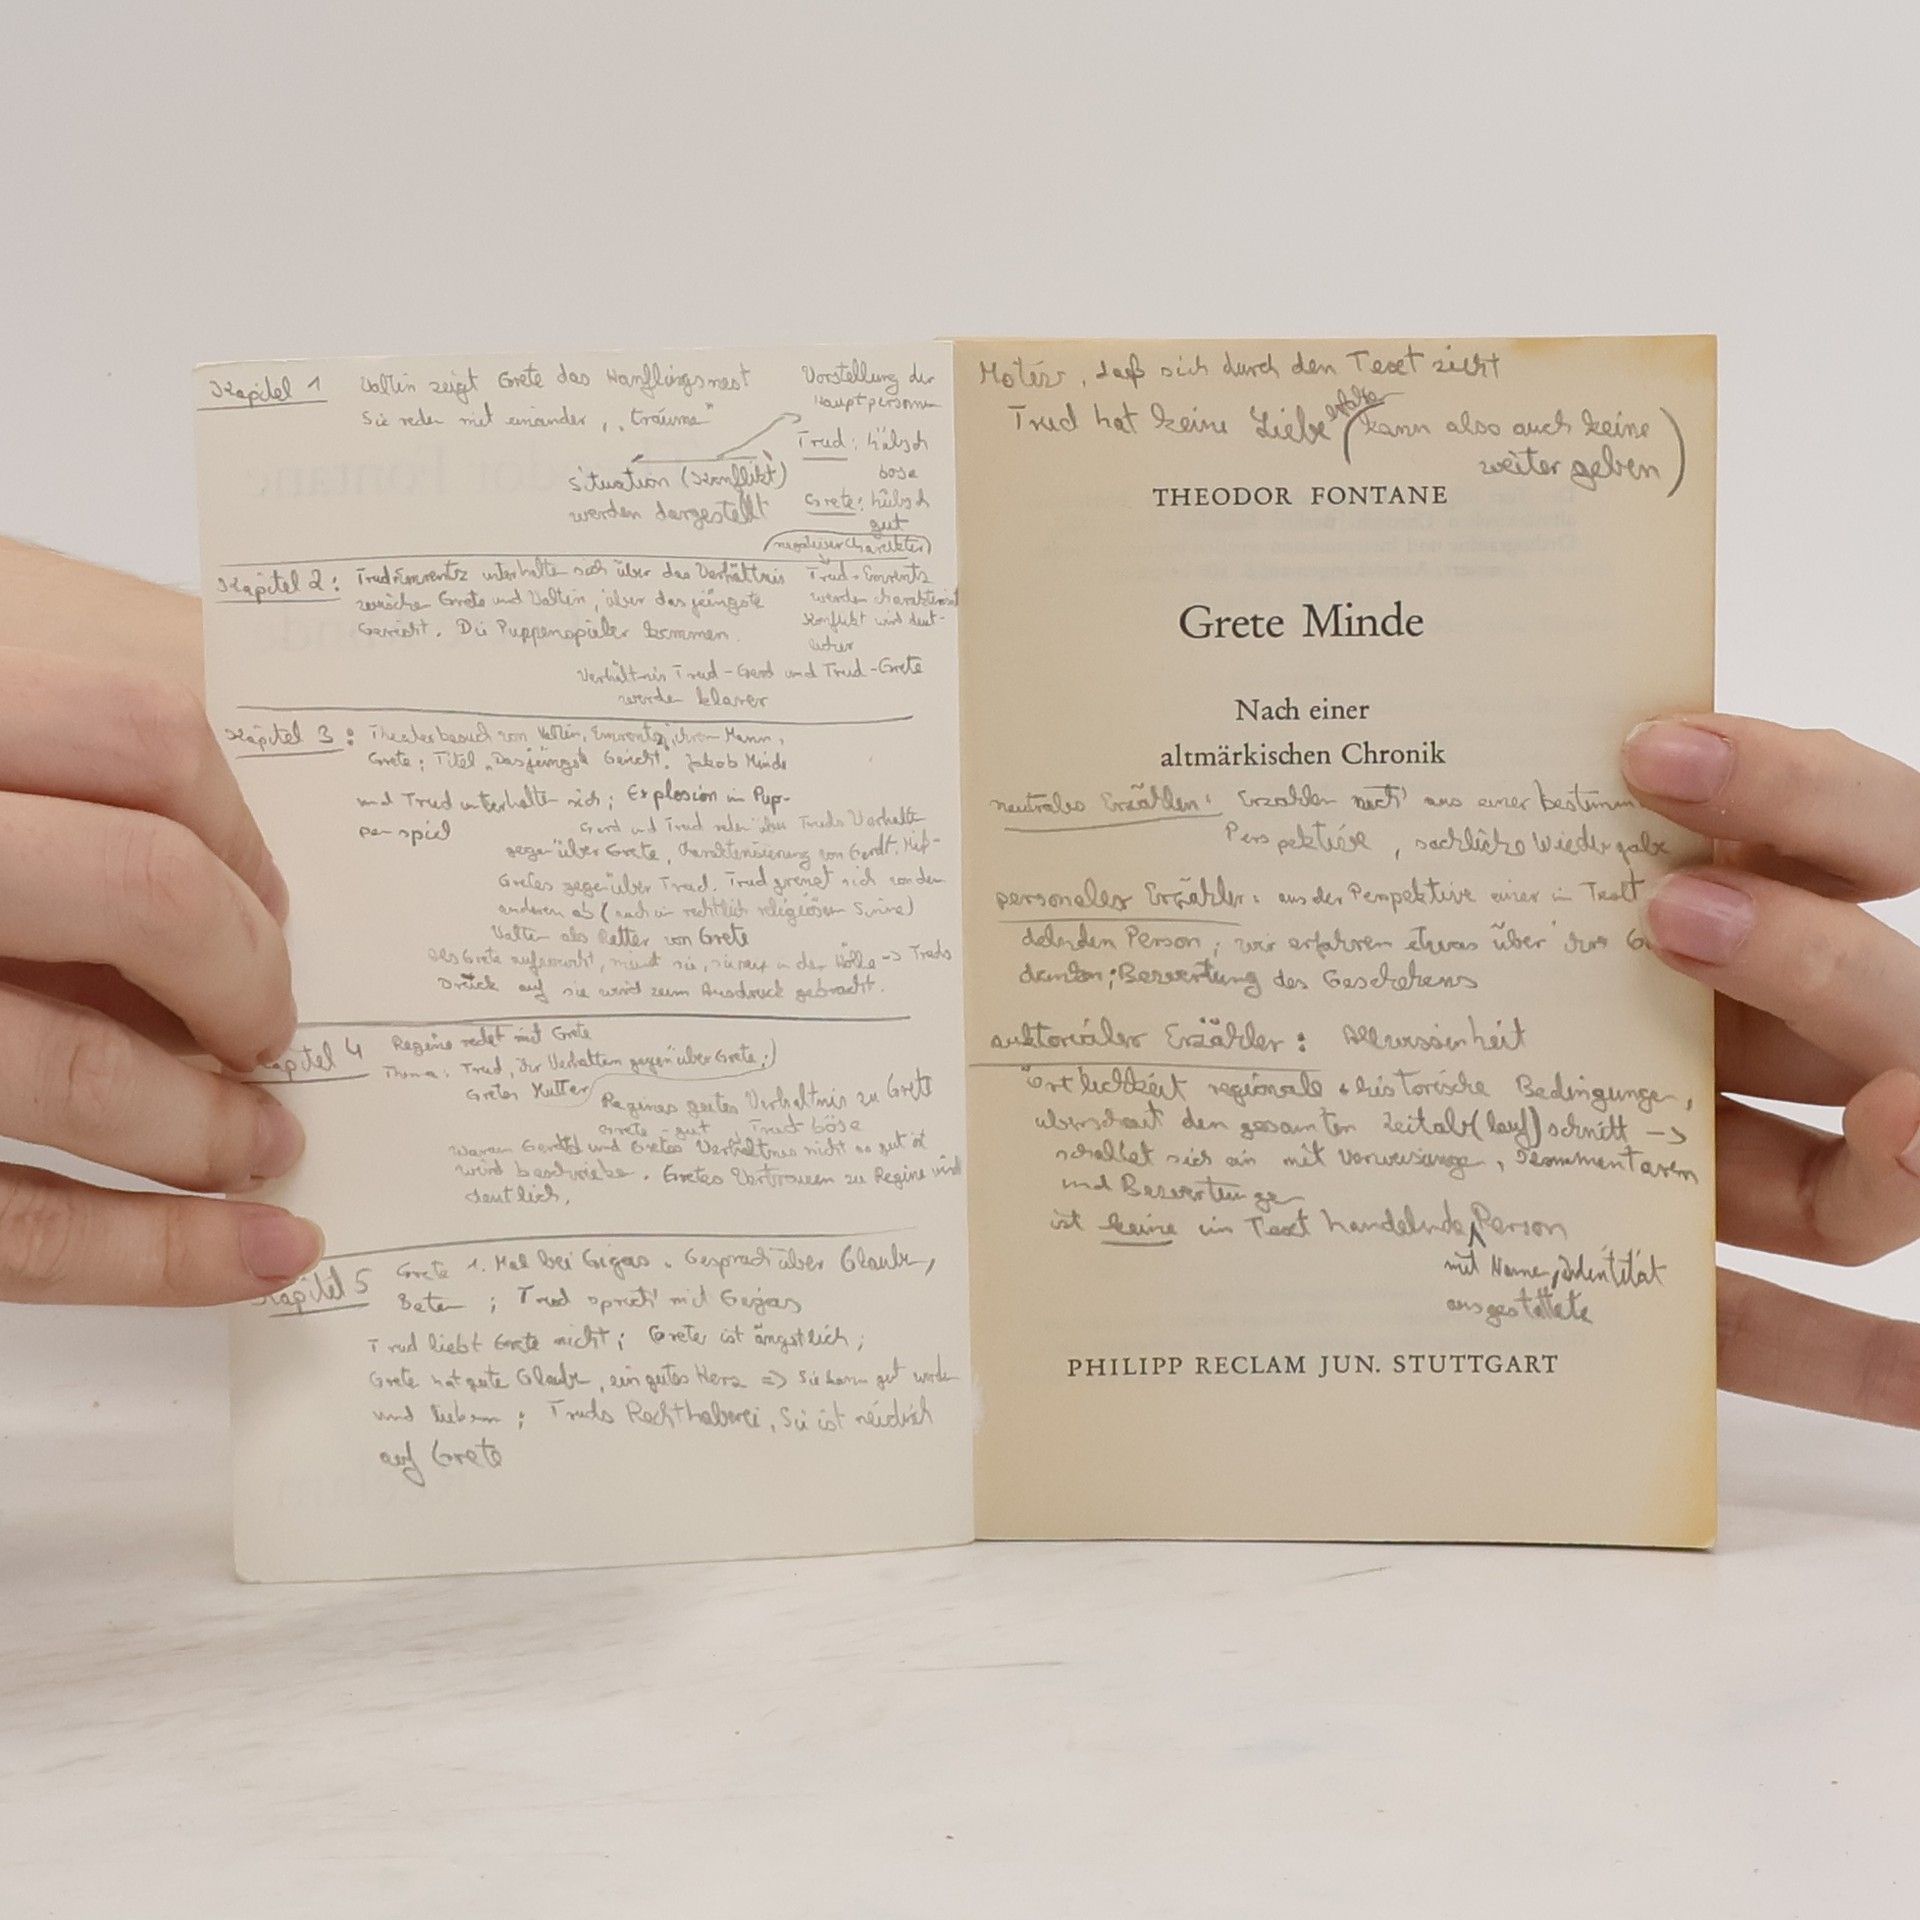 Kapitel 1 Valtin zeigt Grete das Hänflingsnest
Sie reden mit einander, „träume"
Situation (Konflikt)
werden dargestellt
Vorstellung der
Hauptpersonen
Trud: hübsch
böse
Grete: hübsch
gut
Kapitel 2: Trud + Emrentz unterhalten sich über das Verhältnis
zwischen Grete und Valtin, über das jüngste
Gericht. Die Puppenspieler kommen.
(negativer Charakter)
Trud + Emrentz
werden charakterisiert
Konflikt wird deut-
licher
Verhältnis Trud - Gerd und Trud - Grete
werden klarer
Kapitel 3: Theaterbesuch von Valtin, Emrentz, ihrem Mann,
Grete; Titel „Das jüngste Gericht". Jakob Minde
und Trud unterhalten sich; Explosion im Pup-
penspiel
Gerd und Trud reden über Truds Verhalten
gegenüber Grete, Charakterisierung von Gerdt.
Gretes gegenüber Trud. Trud grenzt sich von den
anderen ab (auch im rechtlich religiösen Sinne)
Valtin als Retter von Grete
Als Grete aufwacht, meint sie, sie sei in der Hölle -> Truds
Druck auf sie wird zum Ausdruck gebracht.
Kapitel 4 Regine redet mit Grete
Thema: Trud, ihr Verhalten gegenüber Grete;
Gretes Mutter
Regines gutes Verhältnis zu Grete
Grete - gut, Trud böse
warum Gerdts und Gretes Verhältnis nicht so gut ist
wird beschrieben. Gretes Vertrauen zu Regine wird
deutlich.
Kapitel 5 Grete 1. Mal bei Gigas. Gespräch über Glaube,
Beten; Trud spricht mit Gigas
Trud liebt Grete nicht; Grete ist ängstlich;
Grete hat gute Glaube, ein gutes Herz => Sie kann gut werden
und lieben; Truds Rechthaberei, Sie ist neidisch
auf Grete
Motiv, daß sich durch den Text zieht
Trud hat keine Liebe (kann also auch keine
weiter geben)
THEODOR FONTANE
Grete Minde
Nach einer
altmärkischen Chronik
neutrales Erzählen: Erzählen nicht aus einer bestimm
Perspektive, sachliche Wiedergabe
personaler Erzähler: aus der Perspektive einer im Text
delnden Person; wir erfahren etwas über ihre Ge
danken; Bewertung des Geschehens
auktorialer Erzähler: Allwissenheit
Örtlichkeit regionale + historische Bedingungen,
überschaut den gesamten Zeitab(lauf)schnitt ->
schaltet sich ein mit Verweisungen, Kommentaren
und Bewertungen
ist keine im Text handelnde Person
mit Name, Identität
ausgestattete
PHILIPP RECLAM JUN. STUTTGART